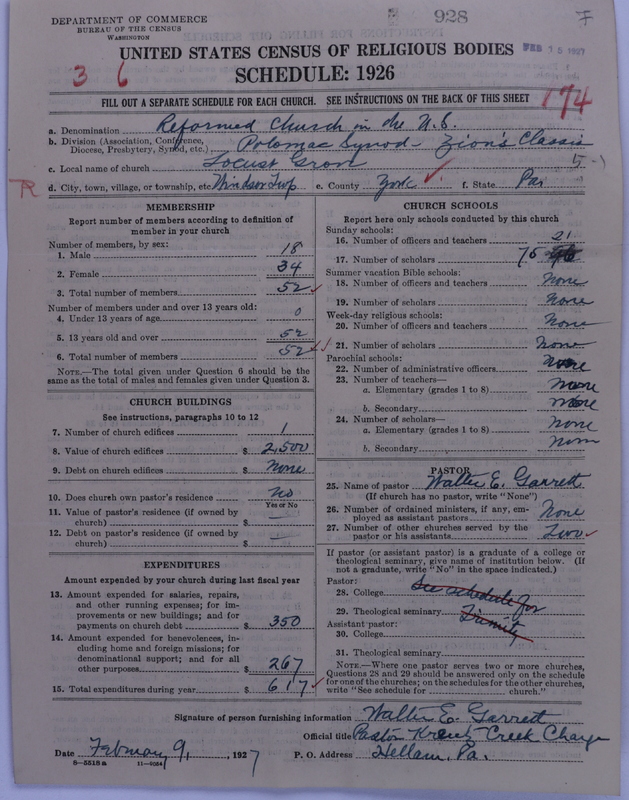 DEPARTMENT OF COMMERCE
BUREAU OF THE CENSUS
WASHINGTON
928
F
UNITED STATES CENSUS OF RELIGIOUS BODIES
FEB 15 1927
SCHEDULE: 1926
3 6
FILL OUT A SEPARATE SCHEDULE FOR EACH CHURCH. SEE INSTRUCTIONS ON THE BACK OF THIS SHEET
174
a. Denomination Reformed Church in the U.S.
b. Division (Association, Conference, Diocese, Presbytery, Synod, etc.) Potomac Synod - Zion's Classis
c. Local name of church Locust Grove
R
d. City, town, village, or township, etc. Windsor Twp e. County York f. State Pa.
MEMBERSHIP
Report number of members according to definition of member in your church
Number of members, by sex:
1. Male 18
2. Female 34
3. Total number of members 52
Number of members under and over 13 years old:
4. Under 13 years of age 0
5. 13 years old and over 52
6. Total number of members 52
NOTE.—The total given under Question 6 should be same as the total of males and females given under Question 3.
CHURCH BUILDINGS
See instructions, paragraphs 10 to 12
7. Number of church edifices 1
8. Value of church edifices $ 2,500
9. Debt on church edifices $ None
10. Does church own pastor's residence No
Yes or No
11. Value of pastor's residence (if owned by church) $ —
12. Debt on pastor's residence (if owned by church) $ —
EXPENDITURES
Amount expended by your church during last fiscal year
13. Amount expended for salaries, repairs, and other running expenses; for improvements or new buildings; and for payments on church debt $ 350
14. Amount expended for benevolences, including home and foreign missions; for denominational support; and for all other purposes $ 267
15. Total expenditures during year $ 617
CHURCH SCHOOLS
Report here only schools conducted by this church
Sunday schools:
16. Number of officers and teachers 21
17. Number of scholars 75
Summer vacation Bible schools:
18. Number of officers and teachers None
19. Number of scholars None
Week-day religious schools:
20. Number of officers and teachers None
21. Number of scholars None
Parochial schools:
22. Number of administrative officers None
23. Number of teachers—
a. Elementary (grades 1 to 8) None
b. Secondary None
24. Number of scholars—
a. Elementary (grades 1 to 8) None
b. Secondary None
PASTOR
25. Name of pastor Walter E. Garrett
(If church has no pastor, write "None")
26. Number of ordained ministers, if any, employed as assistant pastors None
27. Number of other churches served by the pastor or his assistants Two
If pastor (or assistant pastor) is a graduate of a college or theological seminary, give name of institution below. (If not a graduate, write "No" in the space indicated.)
Pastor:
28. College See schedule for
29. Theological seminary Trinity
Assistant pastor:
30. College
31. Theological seminary
NOTE.—Where one pastor serves two or more churches, Questions 28 and 29 should be answered only on the schedule for one of the churches; on the schedules for the other churches, write "See schedule for church."
Signature of person furnishing information Walter E. Garrett
Official title Pastor Kreutz Creek Charge
Date February 9, , 1927 P. O. Address Hellam, Pa.
8—5518a 11—9054